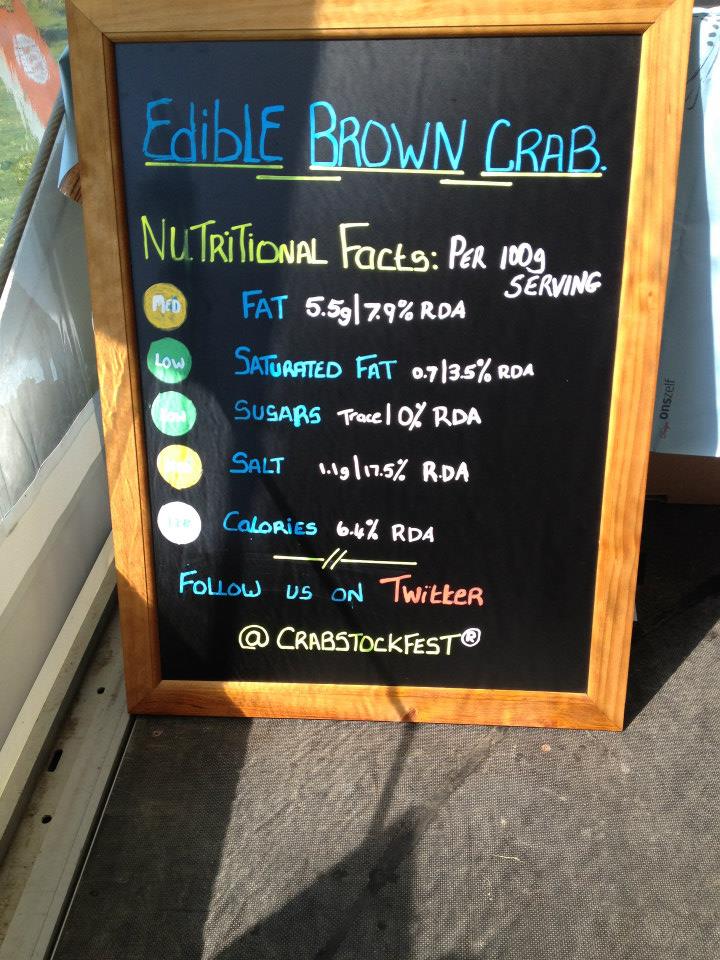 EdiblE BROWN CRAB.
NUTRiTiONAL Facts: PER 100g
SERVING
MED FAT 5.5g|7.9% RDA
LOW SATURATED FAT 0.7|3.5% RDA
LOW SUGARS Trace|0% RDA
MED SALT 1.1g|17.5% R.DA
128 CALORiES 6.4% RDA
FOLLOW US ON TwittER
@ CRABSTOCKFEST®
onszelf